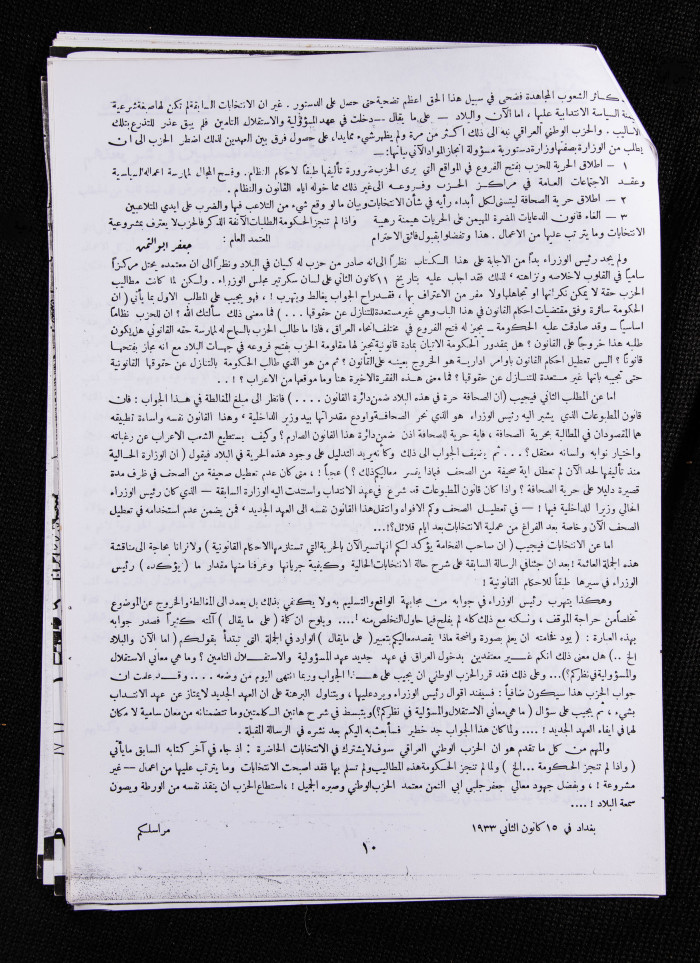 . كسائر الشعوب المجاهدة فضحى في سبيل هذا الحق اعظم تضحية حتى حصل على الدستور . غير ان الانتخابات السابقة لم تكن لها صبغة شرعية
السياسة الانتدابية عليها ، اما الآن والبلاد — على ما يقال — دخلت في عهد المسؤولية والاستقلال التامين فلم يبق عذر للتذرع بتلك
الاساليب . والحزب الوطني العراقي نبه الى ذلك اكثر من مرة ولم يظهر شيء مما يدل على حصول فرق بين العهدين لذلك اضطر الحزب الى ان
يطلب من الوزارة بصفتها وزارة دستورية مسؤولة انجاز المواد الآتي بيانها :—
١ – اطلاق الحرية للحزب بفتح الفروع في المواقع التي يرى الحزب ضرورة تأليفها طبقاً لاحكام النظام . وفسح المجال لممارسة اعماله السياسية
وعقد الاجتماعات العامة في مراكز الحزب وفروعه الى غير ذلك مما خوله اياه القانون والنظام .
٢ – اطلاق حرية الصحافة ليتسنى لكل ابداء رأيه في شأن الانتخابات وبيان ما لو وقع شيء من التلاعب فيها والضرب على ايدي المتلاعبين
٣ – الغاء قانون الدعايات المضرة المهيمن على الحريات هيمنة رهيبة واذا لم تنجز الحكومة الطلبات الآنفة الذكر فالحزب لا يعترف بمشروعية
الانتخابات وما يترتب عليها من الاعمال . هذا وتفضلوا بقبول فائق الاحترام المعتمد العام : جعفر ابو التمن
ولم يجد رئيس الوزراء بداً من الاجابة على هذا الكتاب نظراً الى انه صادر من حزب له كيان في البلاد ونظراً الى ان معتمده يحتل مركزاً
سامياً في القلوب لاخلاصه ونزاهته ، لذلك فقد اجاب عليه بتاريخ ١١ كانون الثاني على لسان سكرتير مجلس الوزراء . ولكن لما كانت مطاليب
الحزب حقة لا يمكن نكرانها او تجاهلها ولا مفر من الاعتراف بها ، فقد راح الجواب يغالط ويتهرب ! ، فهو يجيب على المطلب الاول بما يأتي ( ان
الحكومة سائرة وفق مقتضيات احكام القانون في هذا الباب وهي غير مستعدة للتنازل عن حقوقها . . . ) فما معنى ذلك سألتك الله ؟ ان للحزب نظاماً
اساسياً – وقد صادقت عليه الحكومة – يجيز له فتح الفروع في مختلف انحاء العراق ، فاذا ما طالب الحزب بالسماح له لممارسة حقه القانوني هل يكون
طلبه هذا خروجاً على القانون ؟ هل بمقدور الحكومة الاتيان بمادة قانونية تجيز لها مقاومة الحزب بفتح فروعه في جهات البلاد مع انه مجاز بفتحها
قانوناً ؟ اليس تعطيل احكام القانون باوامر ادارية هو الخروج بعينه على القانون ؟ ثم من هو الذي طالب الحكومة بالتنازل عن حقوقها القانونية
حتى تجيبه بانها غير مستعدة للتنازل عن حقوقها ؟ فما معنى هذه الفقرة الاخيرة هنا وما موقعها من الاعراب ؟ ! . .
اما عن المطلب الثاني فيجيب ( ان الصحافة حرة في هذه البلاد ضمن دائرة القانون . . . . ) فانظر الى مبلغ المغالطة في هذا الجواب : فان
قانون المطبوعات الذي يشير اليه رئيس الوزراء هو الذي نحر الصحافة واودع مقدراتها بيد وزير الداخلية ، وهذا القانون نفسه واساءة تطبيقه
هما المقصودان في المطالبة بحرية الصحافة ، فاية حرية للصحافة اذن ضمن دائرة هذا القانون الصارم ؟ وكيف يستطيع الشعب الاعراب عن رغباته
واختيار نوابه ولسانه معتقل ؟ . . . ثم يضيف الجواب الى ذلك وكأنه يريد التدليل على وجود هذه الحرية في البلاد فيقول ( ان الوزارة الحالية
منذ تأليفها لحد الآن لم تعطل اية صحيفة من الصحف فبماذا يفسر معاليكم ذلك ؟ ) عجباً ! ، متى كان عدم تعطيل صحيفة من الصحف في ظرف مدة
قصيرة دليلا على حرية الصحافة ؟ واذا كان قانون المطبوعات قد شرع في عهد الانتداب واستندت اليه الوزارة السابقة — الذي كان رئيس الوزراء
الحالي وزيرا للداخلية فيها ! — في تعطيل الصحف وكم الافواه وانتقل هذا القانون نفسه الى العهد الجديد ، فمن يضمن عدم استخدامه في تعطيل
الصحف الآن وخاصة بعد الفراغ من عملية الانتخابات بعد ايام قلائل ؟! ...
اما عن الانتخابات فيجيب ( ان صاحب الفخامة يؤكد لكم انها تسير الآن بالحرية التي تستلزمها الاحكام القانونية ) ولا نرانا بحاجة الى مناقشة
هذه الجملة العائمة ! بعد ان جئنا في الرسالة السابقة على شرح حالة الانتخابات الحالية وكيفية جريانها وعرفنا منها مقدار ما ( يؤكده ) رئيس
الوزراء في سيرها طبقاً للاحكام القانونية !
وهكذا يتهرب رئيس الوزراء في جوابه من مجابهة الواقع والتسليم به ولا يكتفي بذلك بل يعمد الى المغالطة والخروج عن الموضوع
تخلصاً من حراجة الموقف ، ولكنه مع ذلك كله لم يفلح فيما حاول التخلص منه ! .... ويلوح ان كلة ( على ما يقال ) آلمته كثيراً فصدر جوابه
بهذه العبارة : ( يود فخامته ان يعلم بصورة واضحة ماذا يقصد معاليكم بتعبير ( على ما يقال ) الوارد في الجملة التي تبتدأ بقولكم ( اما الآن والبلاد
الخ .. ) هل معنى ذلك انكم غير معتقدين بدخول العراق في عهد جديد عهد المسؤولية والاستقلال التامين ؟ وما هي معاني الاستقلال
والمسؤولية في نظركم ؟ ) ... وعلى ذلك فقد قرر الحزب الوطني ان يجيب على هذا الجواب وربما انتهى اليوم من وضعه . . . . وقد علمت ان
جواب الحزب هذا سيكون ضافياً : فسيفند اقوال رئيس الوزراء ويرد عليها ، ويتناول البرهنة على ان العهد الجديد لا يمتاز عن عهد الانتداب
بشيء ، ثم يجيب على سؤال ( ما هي معاني الاستقلال والمسؤولية في نظركم ؟ ) ويتبسط في شرح هاتين الكلمتين وما تتضمنانه من معان سامية لا مكان
لها في ايفاء العهد الجديد ! .... ولما كان هذا الجواب جد خطير فسأبعث به اليكم بعد نشره في الرسالة المقبلة .
والمهم من كل ما تقدم هو ان الحزب الوطني العراقي سوف لا يشترك في الانتخابات الحاضرة : اذ جاء في آخر كتابه السابق ما يأتي
( واذا لم تنجز الحكومة ... الخ ) ولما لم تنجز الحكومة هذه المطاليب ولم تسلم بها فقد اصبحت الانتخابات وما يترتب عليها من اعمال — غير
مشروعة ! ، وبفضل جهود معالي جعفر جلبي ابي التمن معتمد الحزب الوطني وصبره الجميل ! ، استطاع الحزب ان ينقذ نفسه من الورطة ويصون
سمعة البلاد ! ....
بغداد في ١٥ كانون الثاني ١٩٣٣ مراسلكم
١٠